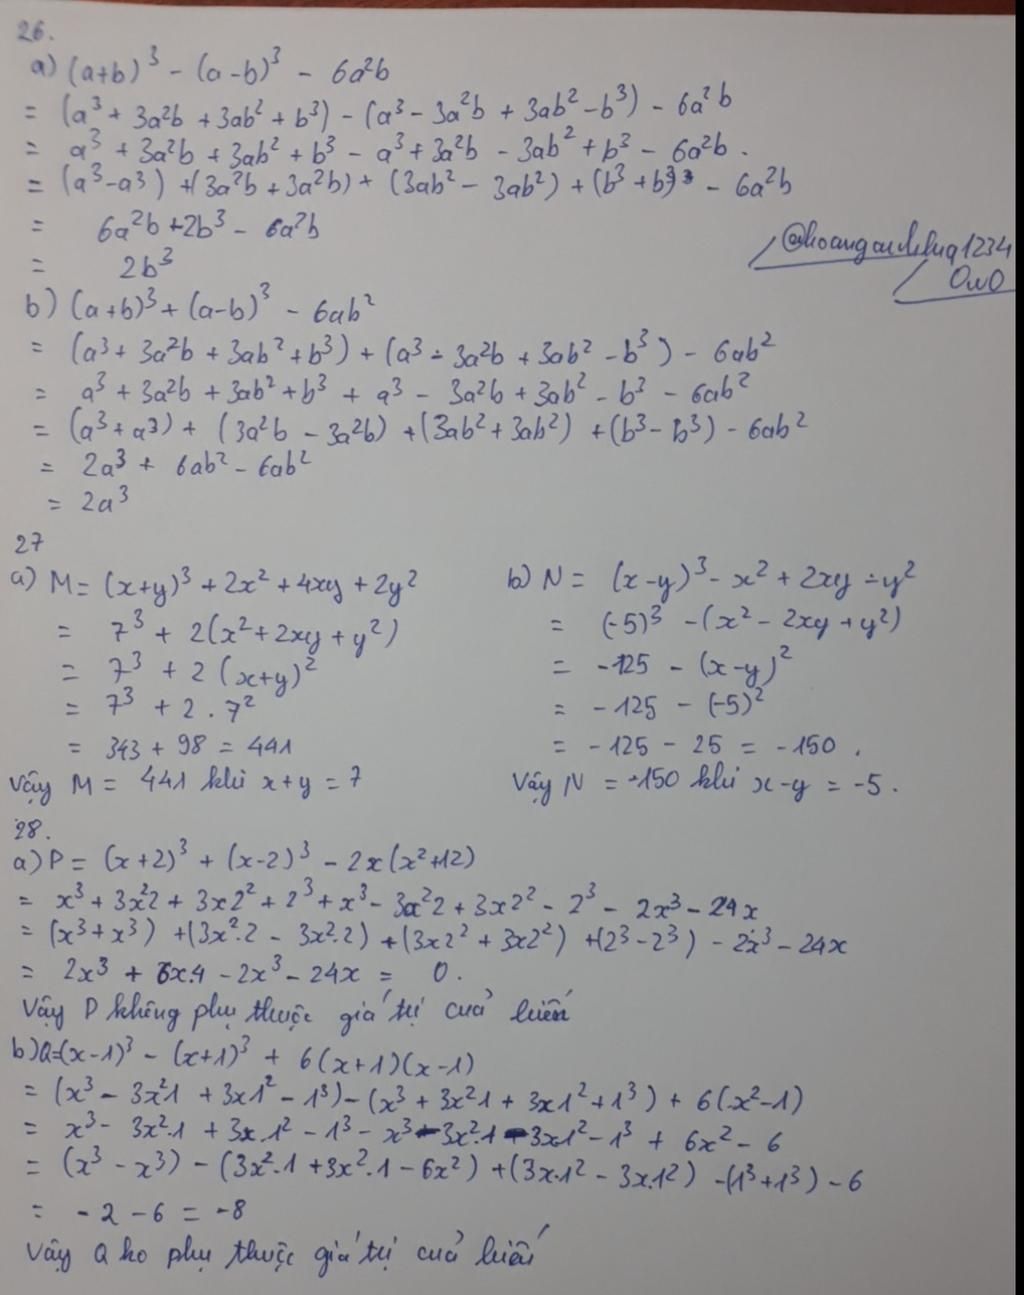 26.
a) (a+b)³ - (a-b)³ - 6a²b
= (a³ + 3a²b + 3ab² + b³) - (a³ - 3a²b + 3ab² - b³) - 6a²b
= a³ + 3a²b + 3ab² + b³ - a³ + 3a²b - 3ab² + b³ - 6a²b.
= (a³-a³) + (3a²b + 3a²b) + (3ab² - 3ab²) + (b³ + b³) - 6a²b
= 6a²b + 2b³ - 6a²b
= 2b³
OwO
b) (a+b)³ + (a-b)³ - 6ab²
= (a³ + 3a²b + 3ab² + b³) + (a³ - 3a²b + 3ab² - b³) - 6ab²
= a³ + 3a²b + 3ab² + b³ + a³ - 3a²b + 3ab² - b³ - 6ab²
= (a³ + a³) + (3a²b - 3a²b) + (3ab² + 3ab²) + (b³ - b³) - 6ab²
= 2a³ + 6ab² - 6ab²
= 2a³
27
a) M = (x+y)³ + 2x² + 4xy + 2y²
= 7³ + 2(x² + 2xy + y²)
= 7³ + 2 (x+y)²
= 7³ + 2 . 7²
= 343 + 98 = 441
Vậy M = 441 khi x+y = 7
b) N = (x-y)³ - x² + 2xy - y²
= (-5)³ - (x² - 2xy + y²)
= -125 - (x-y)²
= -125 - (-5)²
= -125 - 25 = -150 .
Vậy N = -150 khi x-y = -5 .
28.
a) P = (x+2)³ + (x-2)³ - 2x(x²+12)
= x³ + 3x²2 + 3x2² + 2³ + x³ - 3x²2 + 3x2² - 2³ - 2x³ - 24x
= (x³ + x³) + (3x².2 - 3x².2) + (3x2² + 3x2²) + (2³ - 2³) - 2x³ - 24x
= 2x³ + 6x.4 - 2x³ - 24x = 0.
Vậy P không phụ thuộc giá trị của biến
b) Q=(x-1)³ - (x+1)³ + 6(x+1)(x-1)
= (x³ - 3x²1 + 3x1² - 1³) - (x³ + 3x²1 + 3x1² + 1³) + 6(x²-1)
= x³ - 3x².1 + 3x.1² - 1³ - x³ - 3x².1 - 3x1² - 1³ + 6x² - 6
= (x³ - x³) - (3x².1 + 3x².1 - 6x²) + (3x.1² - 3x.1²) - (1³ + 1³) - 6
= -2 - 6 = -8
Vậy Q ko phụ thuộc giá trị của biến